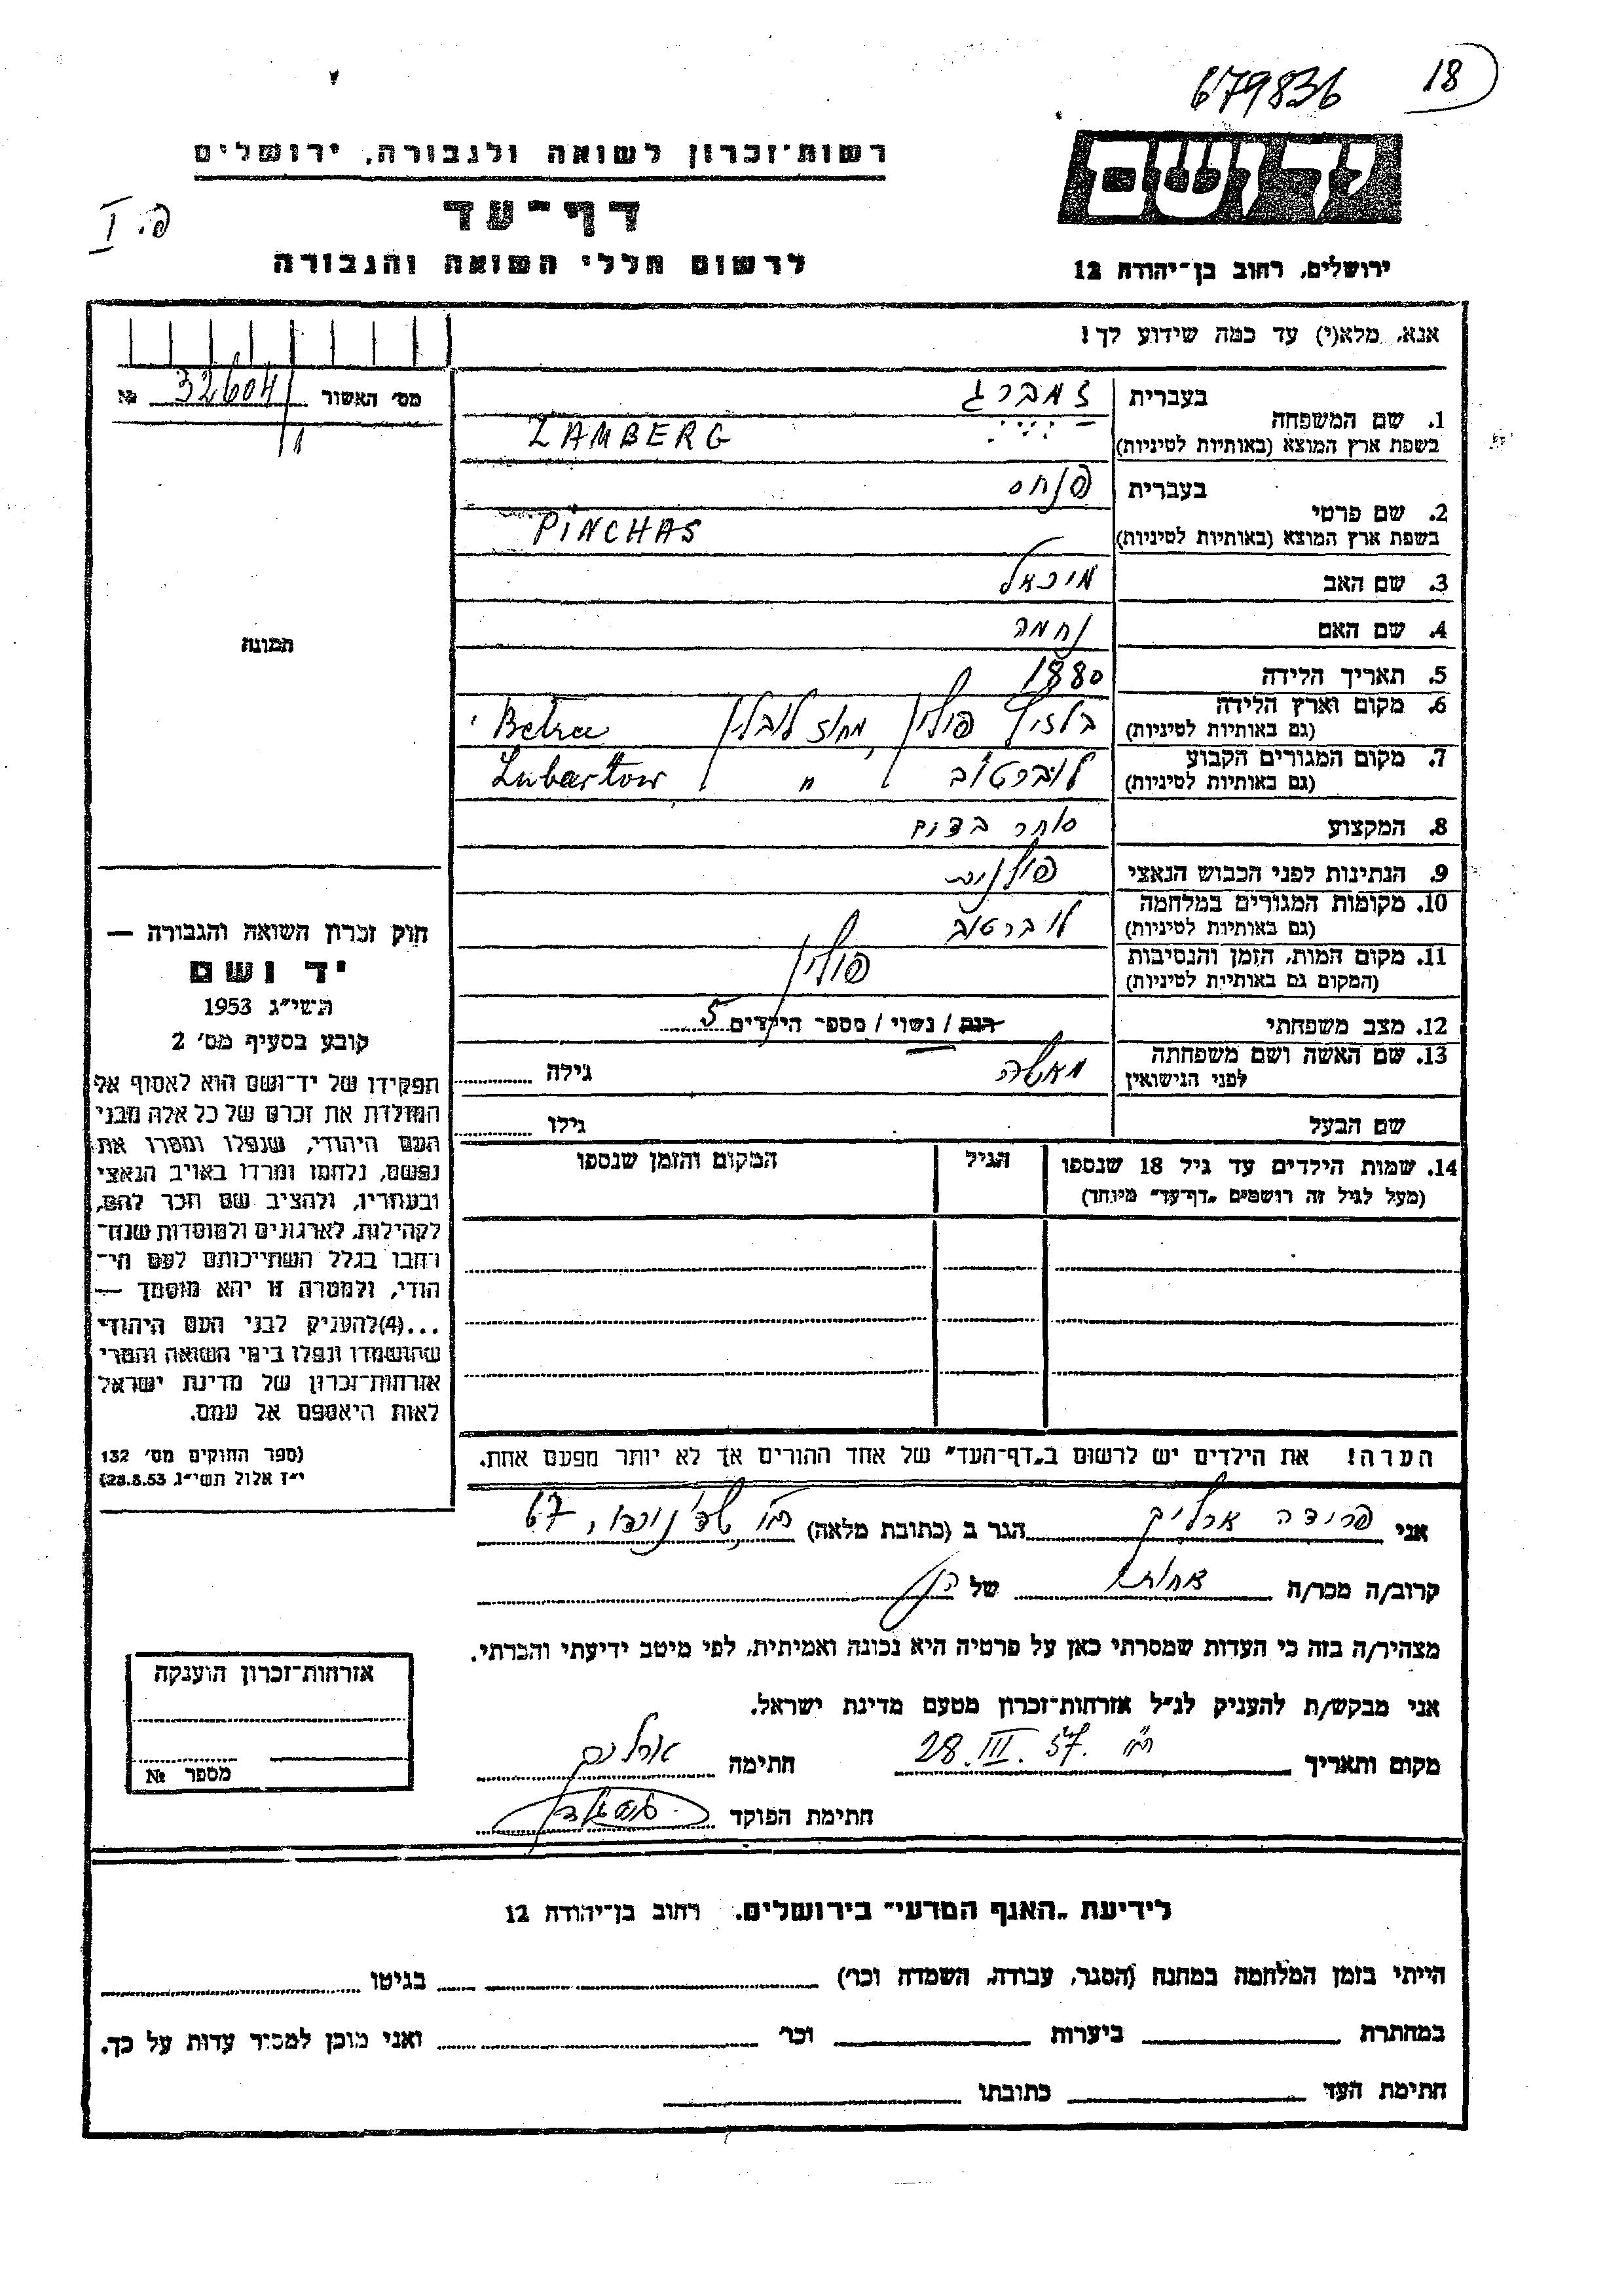 679836
18
יד ושם
רשות־זכרון לשואה ולגבורה, ירושלים
דף־עד
פ. I
לרשום חללי השואה והגבורה
ירושלים, רחוב בן־יהודה 12
אנא, מלא(י) עד כמה שידוע לך!
מס׳ האשור 32604 №
1. שם המשפחה בעברית זמברג
בשפת ארץ המוצא (באותיות לטיניות) ZAMBERG
2. שם פרטי בעברית פנחס
בשפת ארץ המוצא (באותיות לטיניות) PINCHAS
3. שם האב מיכאל
4. שם האם נחמה
5. תאריך הלידה 1880
6. מקום וארץ הלידה פולין, מחוז לובלין
(גם באותיות לטיניות)
7. מקום המגורים הקבוע לוברטוב " Lubartow
(גם באותיות לטיניות)
8. המקצוע סוחר
9. הנתינות לפני הכבוש הנאצי פולנית
10. מקומות המגורים במלחמה לוברטוב
(גם באותיות לטיניות)
11. מקום המות, הזמן והנסיבות פולין
(המקום גם באותיות לטיניות)
12. מצב משפחתי רוק / נשוי / מספר הילדים 5
13. שם האשה ושם משפחתה גילה
לפני הנישואין
שם הבעל גילו
14. שמות הילדים עד גיל 18 שנספו הגיל המקום והזמן שנספו
(מעל לגיל זה רושמים „דף־עד״ מיוחד)
הערה! את הילדים יש לרשום ב„דף־העד״ של אחד ההורים אך לא יותר מפעם אחת.
תמונה
חוק זכרון השואה והגבורה —
יד ושם
תשי״ג 1953
קובע בסעיף מס׳ 2
תפקידו של יד־ושם הוא לאסוף אל
המולדת את זכרם של כל אלה מבני
העם היהודי, שנפלו ומסרו את
נפשם, נלחמו ומרדו באויב הנאצי
ובעוזריו, ולהציב שם וזכר להם,
לקהילות, לארגונים ולמוסדות שנח־
רבו בגלל השתייכותם לעם הי־
הודי, ולמטרה זו יהא מוסמך —
...(4)להעניק לבני העם היהודי
שהושמדו ונפלו בימי השואה והמרי
אזרחות־זכרון של מדינת ישראל
לאות היאספם אל עמם.
(ספר החוקים מס׳ 132
י״ז אלול תשי״ג, 28.8.53)
אני פרידה ארליך הגר ב (כתובת מלאה) 67
קרוב/ה מכר/ה של
מצהיר/ה בזה כי העדות שמסרתי כאן על פרטיה היא נכונה ואמיתית, לפי מיטב ידיעתי והכרתי.
אני מבקש/ת להעניק לנ״ל אזרחות־זכרון מטעם מדינת ישראל.
מקום ותאריך 28.III.57 חתימה
חתימת הפוקד
אזרחות־זכרון הוענקה
מספר №
לידיעת „האגף המדעי״ בירושלים, רחוב בן־יהודה 12
הייתי בזמן המלחמה במחנה (הסגר, עבודה, השמדה וכו׳) בגיטו
במחתרת ביערות וכו׳ ואני מוכן למסור עדות על כך.
חתימת העד כתובתו